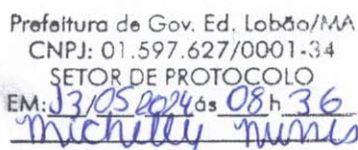 Prefeitura de Gov. Ed. Lobão/MA
CNPJ: 01.597.627/0001-34
SETOR DE PROTOCOLO
EM: 13/05/2024 ás 08 h 36
Michelly Nunes